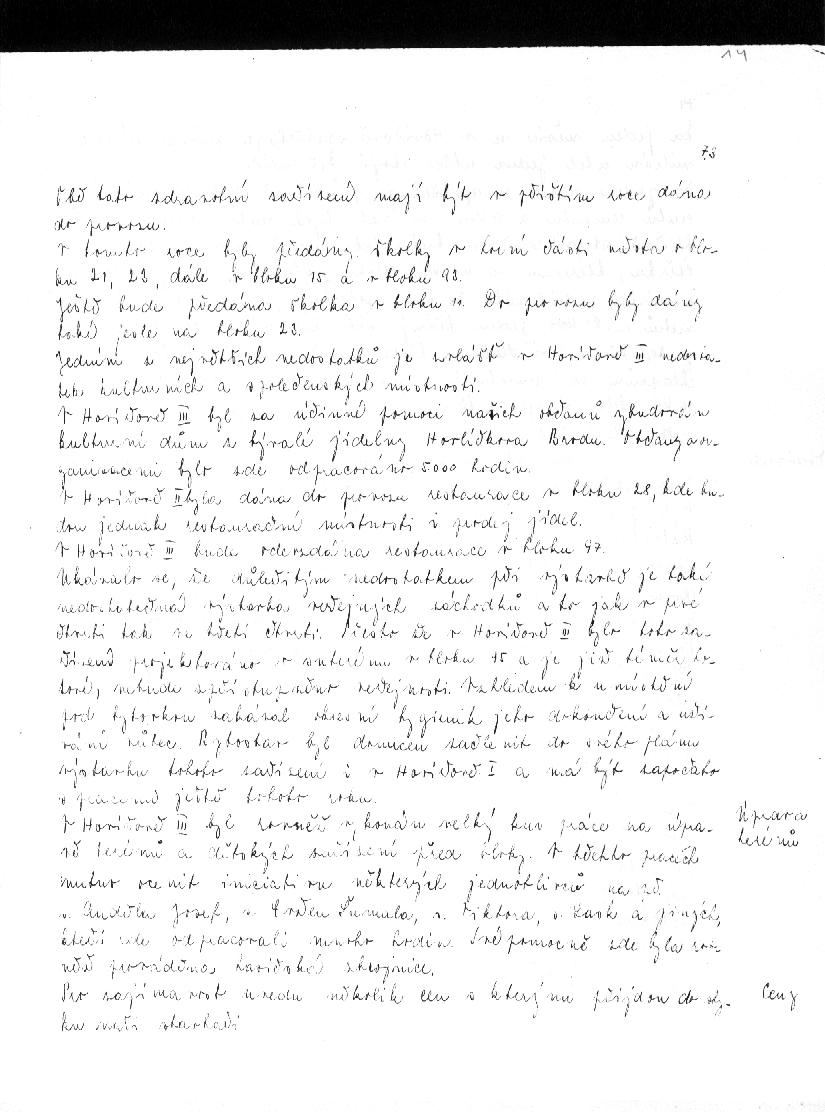 14
73
Obě tato zdravotní zařízení mají být v příštím roce dána
do provozu.
V tomto roce byly předány školky v horní části města v blo-
ku 21, 23, dále v bloku 15 a v bloku 93.
Ještě bude předána školka v bloku Do provozu byly dány
také jesle na bloku 23.
Jedním z největších nedostatků je zvlášť v Horičově III nedosta-
tek kulturních a společenských místností.
V Horičově III byl za účinné pomoci našich občanů vybudován
kulturní dům z bývalé jídelny Horlíčkova Brodu. Občany a or-
ganizacemi bylo zde odpracováno 5000 hodin.
V Horičově II byla dána do provozu restaurace v bloku 28, kde bu-
dou jednak restaurační místnosti i prodej jídel.
V Horičově III bude odevzdána restaurace v bloku 97.
Ukázalo se, že důležitým nedostatkem při výstavbě je také
nedostatečná výstavba veřejných záchodků a to jak v prvé
čtvrti tak ve třetí čtvrti. Přesto že v Horičově II bylo toto za-
řízení projektováno v suterénu v bloku 45 a je již téměř ho-
tové, nebude zpřístupněno veřejnosti. Vzhledem k umístění
pod bytovkou zakázal okresní hygienik jeho dokončení a uží-
vání vůbec. Bytostav byl donucen začlenit do svého plánu
výstavbu tohoto zařízení i v Horičově I a má být započato
s pracemi ještě tohoto roku.
V Horičově III byl rovněž vykonán velký kus práce na úpra-
vě terénů a dětských zařízení před bloky. V těchto pracích
nutno ocenit iniciativu některých jednotlivců na př.
s. Anděla Josef, s. Šumula, s. Viktora, s. a jiných,
kteří zde odpracovali mnoho hodin. Svépomocně zde byla rov-
něž prováděna
Pro zajímavost uvedu několik cen s kterými přijdou do sty-
ku naši stavbaři
Úprava
terénů
Ceny